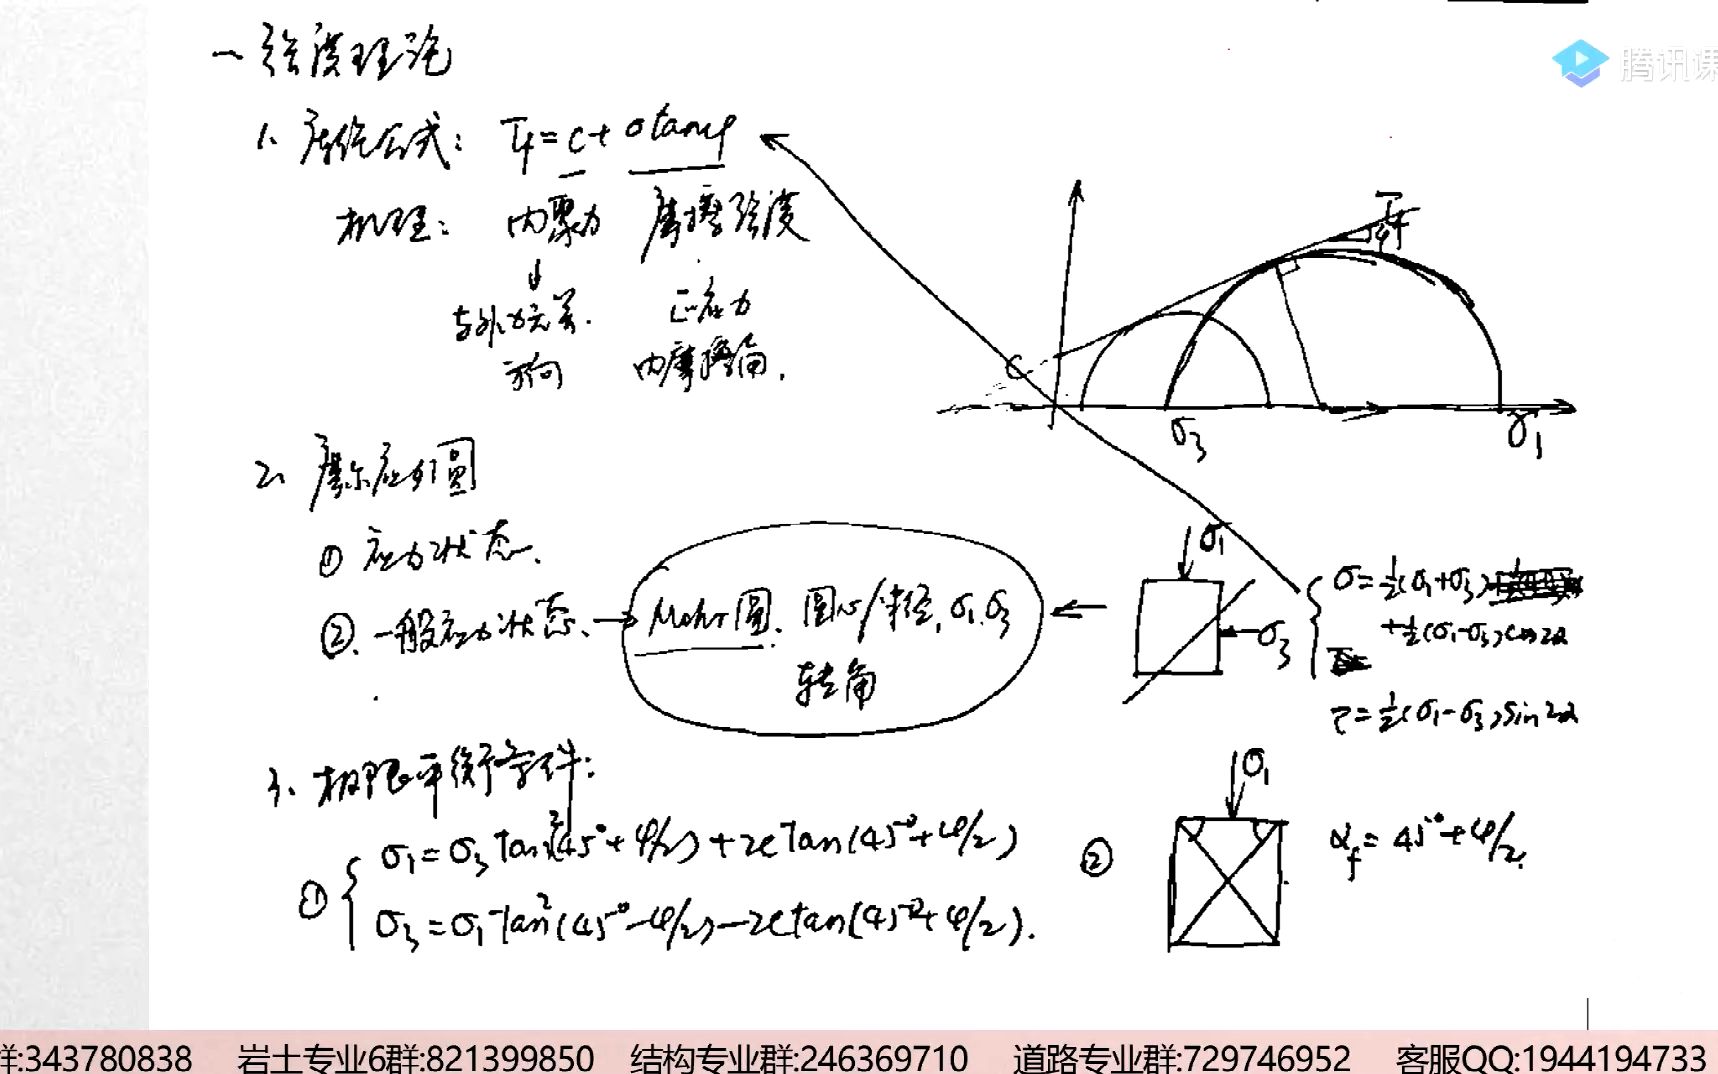 一 强度理论
1. 库伦公式: τf = c + σtanφ
机理: 内聚力 摩擦强度
↓
与外力无关. 正应力
方向 内摩擦角.
τf
C
σ3 σ1
2. 摩尔应力圆
① 应力状态.
②. 一般应力状态. → Mohr圆. 圆心/半径, σ1. σ3
转角
σ1
σ3
σ = ½(σ1+σ3)
+½(σ1-σ3)cos2α
τ = ½(σ1-σ3)sin2α
3. 极限平衡条件:
① { σ1 = σ3 tan²(45°+φ/2) + 2c tan(45°+φ/2)
σ3 = σ1 tan²(45°-φ/2) - 2c tan(45°+φ/2).
② σ1 αf = 45°+φ/2.
腾讯课
群:343780838 岩土专业6群:821399850 结构专业群:246369710 道路专业群:729746952 客服QQ:1944194733